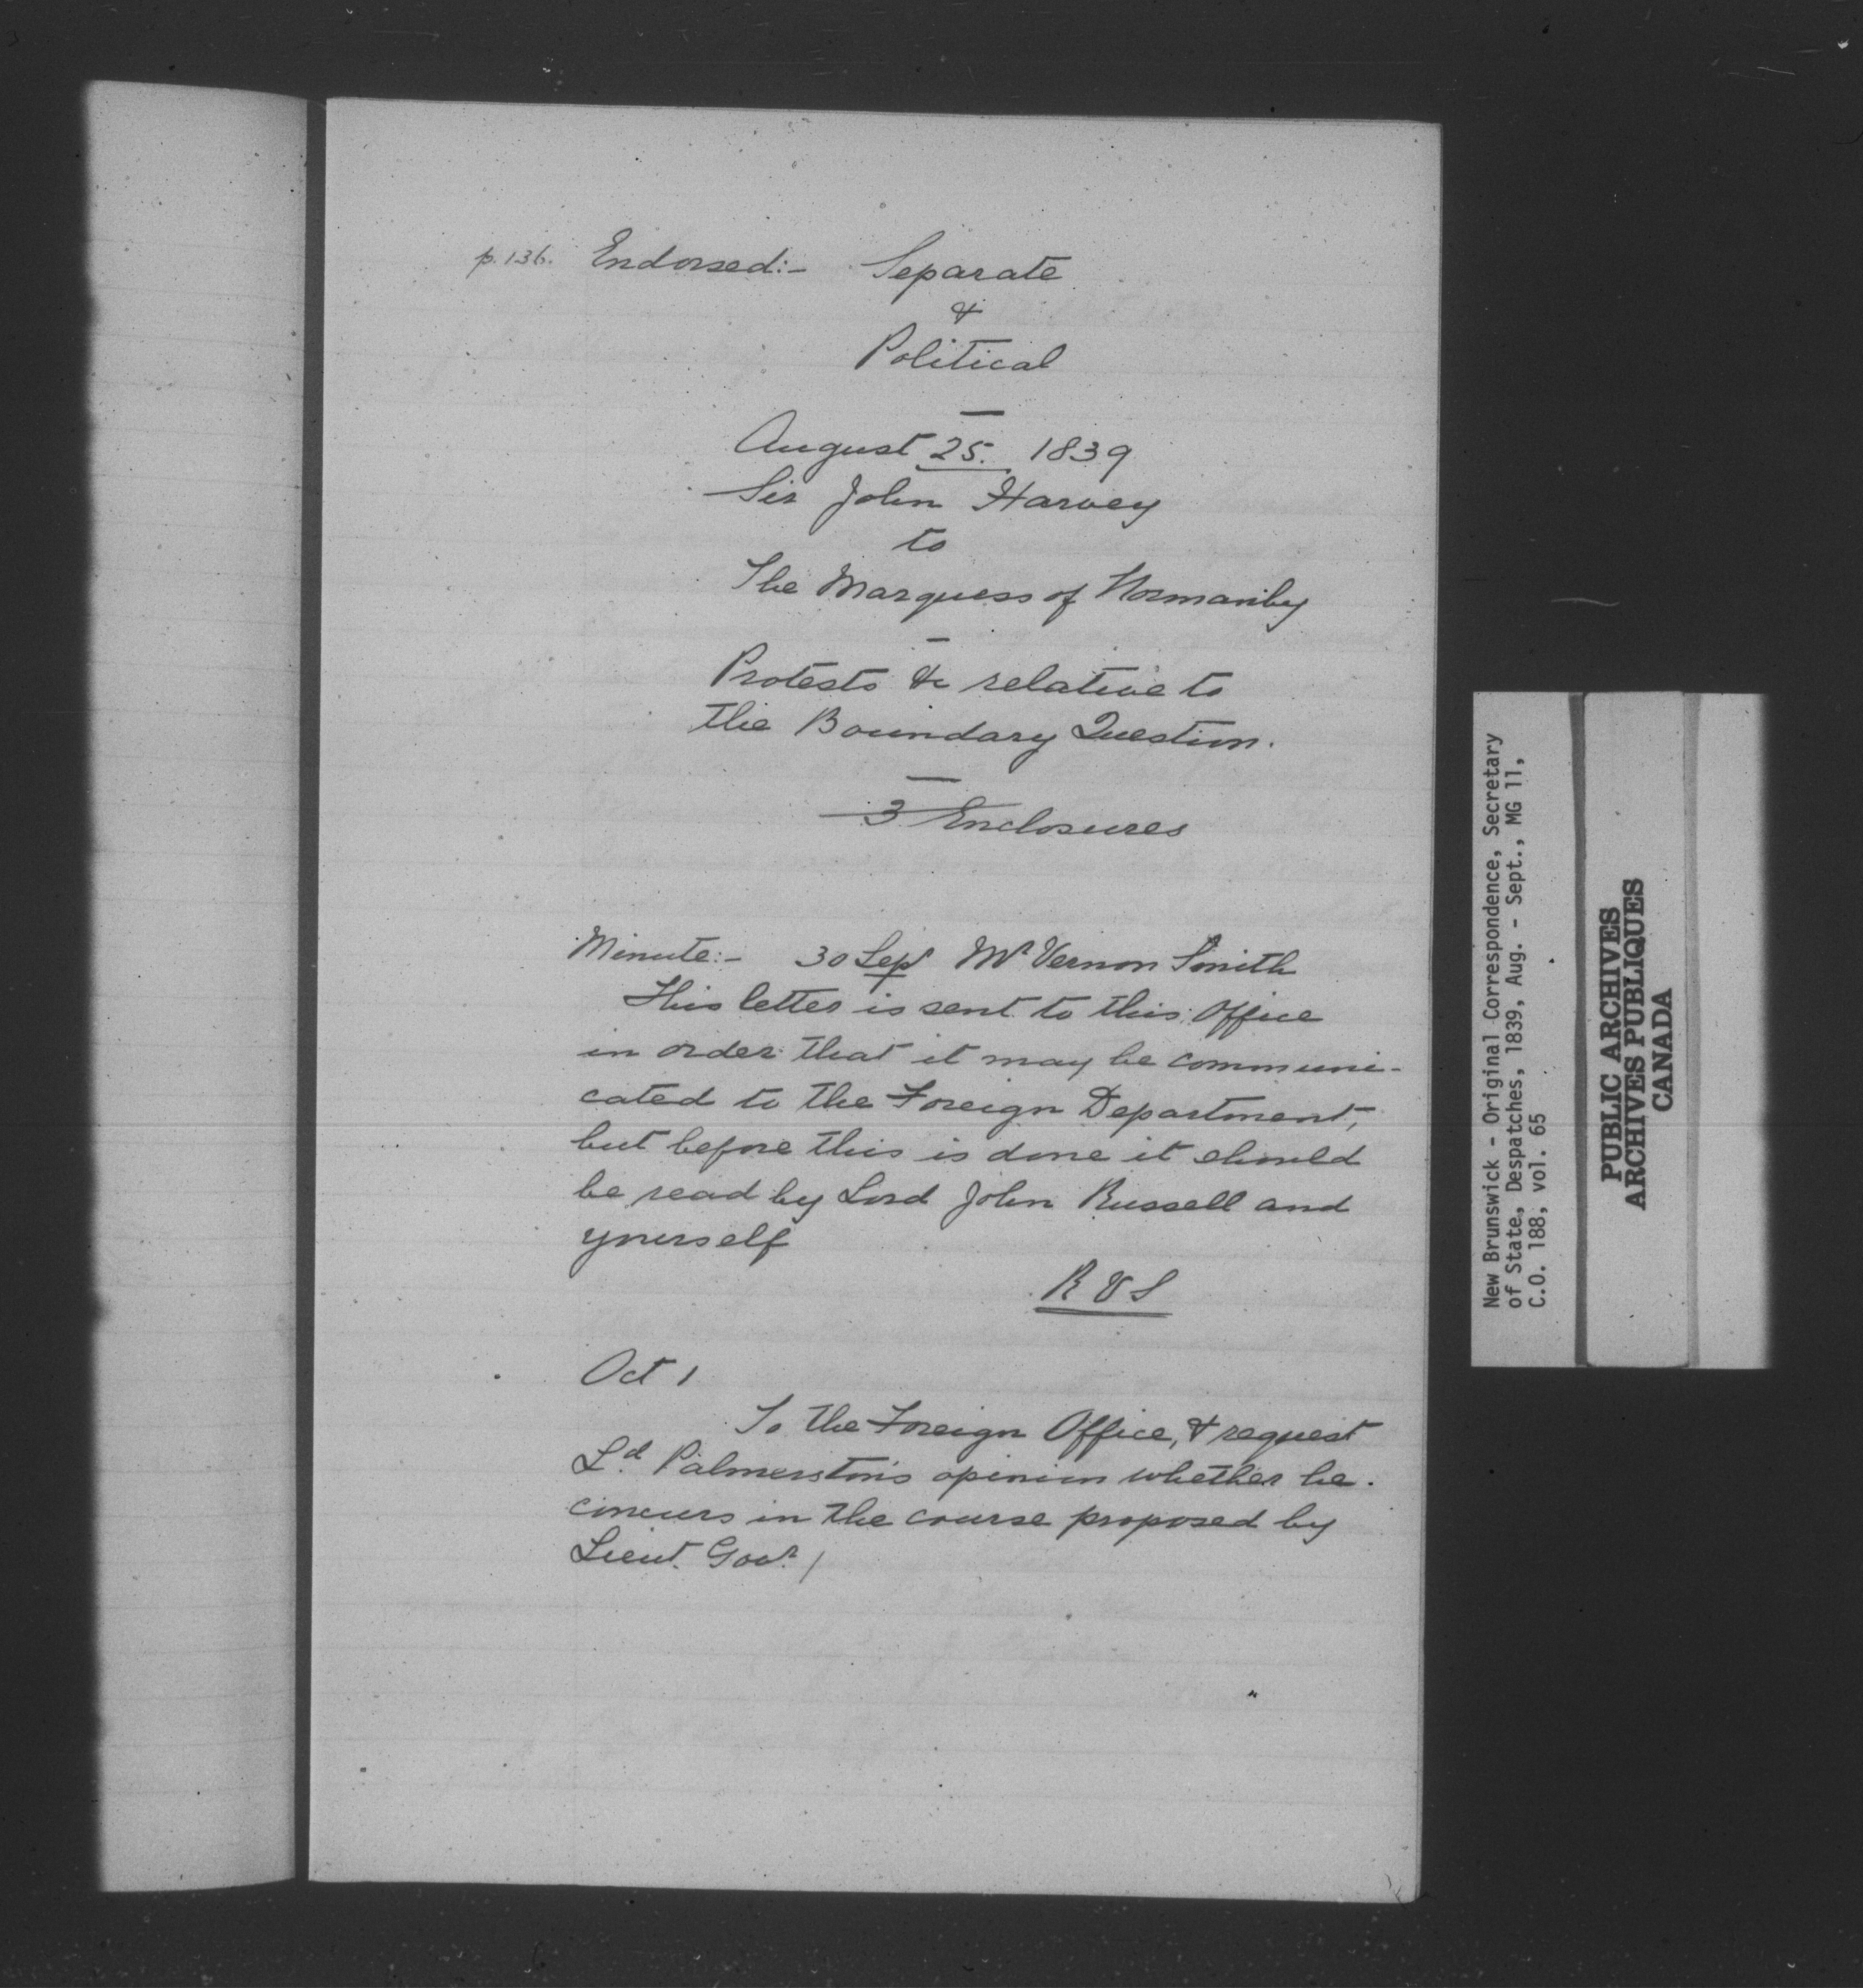 p.136. Endorsed:- Separate
&
Political
August 25. 1839
Sir John Harvey
to
The Marquess of Normanby
Protests &c relative to
the Boundary Question.
3 Enclosures
Minute:- 30 Sept Mr Vernon Smith
This letter is sent to this Office
in order that it may be communi-
cated to the Foreign Department,
but before this is done it should
be read by Lord John Russell and
yourself
R V S
Oct 1
To the Foreign Office, & request
Ld. Palmerston's opinion whether he
concurs in the course proposed by
Lieut. Govr. /
New Brunswick - Original Correspondence, Secretary
of State, Despatches, 1839, Aug. - Sept., MG 11,
C.O. 188, vol. 65
PUBLIC ARCHIVES
ARCHIVES PUBLIQUES
CANADA